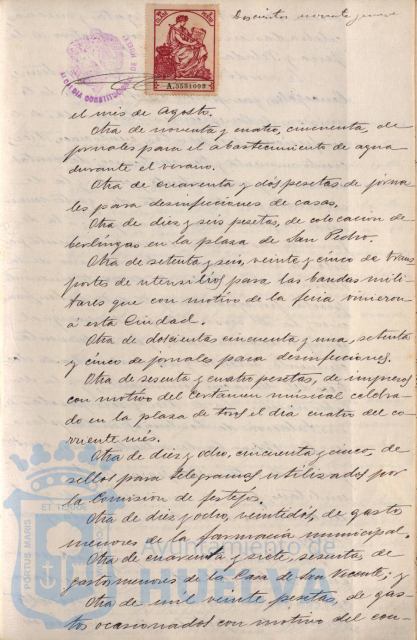 Doscientos noventa y nueve
ALCALDIA CONSTITUCIONAL DE
A.3551093
el mes de Agosto.
Otra de noventa y cuatro, cincuenta, de
jornales para el abastecimiento de agua
durante el verano.
Otra de cuarenta y dos pesetas de jorna
les para desinfecciones de casas.
Otra de diez y seis pesetas, de colocacion de
berlingas en la plaza de San Pedro.
Otra de setenta y seis, veinte y cinco de trans
portes de utensilios para las bandas mili-
tares que con motivo de la feria vinieron
á esta Ciudad.
Otra de doscientas cincuenta y una, setenta
y cinco de jornales para desinfecciones.
Otra de sesenta y cuatro pesetas, de impresos
con motivo del certamen musical celebra-
do en la plaza de toros el dia cuatro del co-
rriente mes.
Otra de diez y ocho, cincuenta y cinco, de
sellos para telegramas utilizados por
la Comision de festejos.
Otra de diez y ocho, veintidos, de gastos
menores de la farmacia municipal.
Otra de cuarenta y siete, sesenta, de
gastos menores de la Casa de San Vicente; y
Otra de mil veinte pesetas, de gas-
tos ocasionados con motivo del con-
PORTUS MARIS
ET TERRAE
Ayuntamiento de
HUELVA